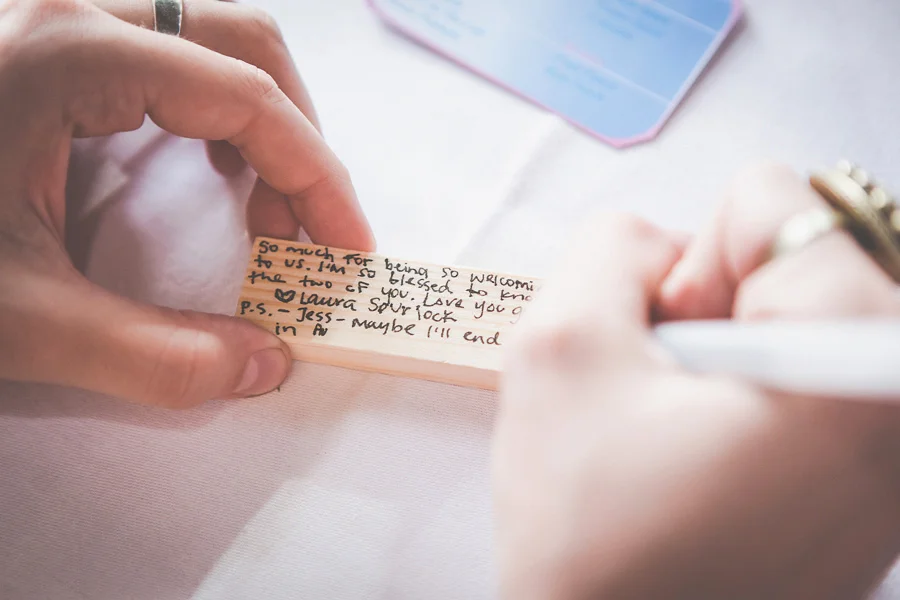 so much for being so welcomi
to us. I'm so blessed to kno
the two of you. Love you g
♡ Laura Spurlock
P.S. - Jess - maybe I'll end
in Au